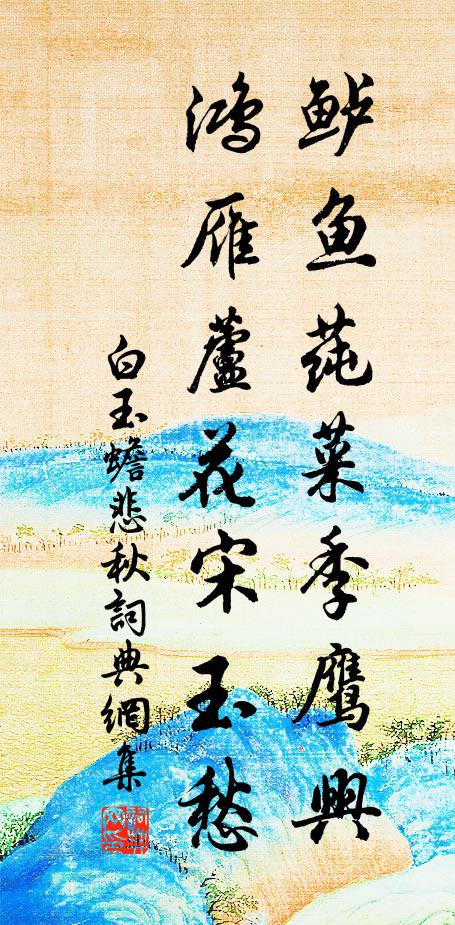 鲈鱼莼菜季鹰興
鸿雁蘆花宋玉愁
白玉蟾悲秋詞典網集